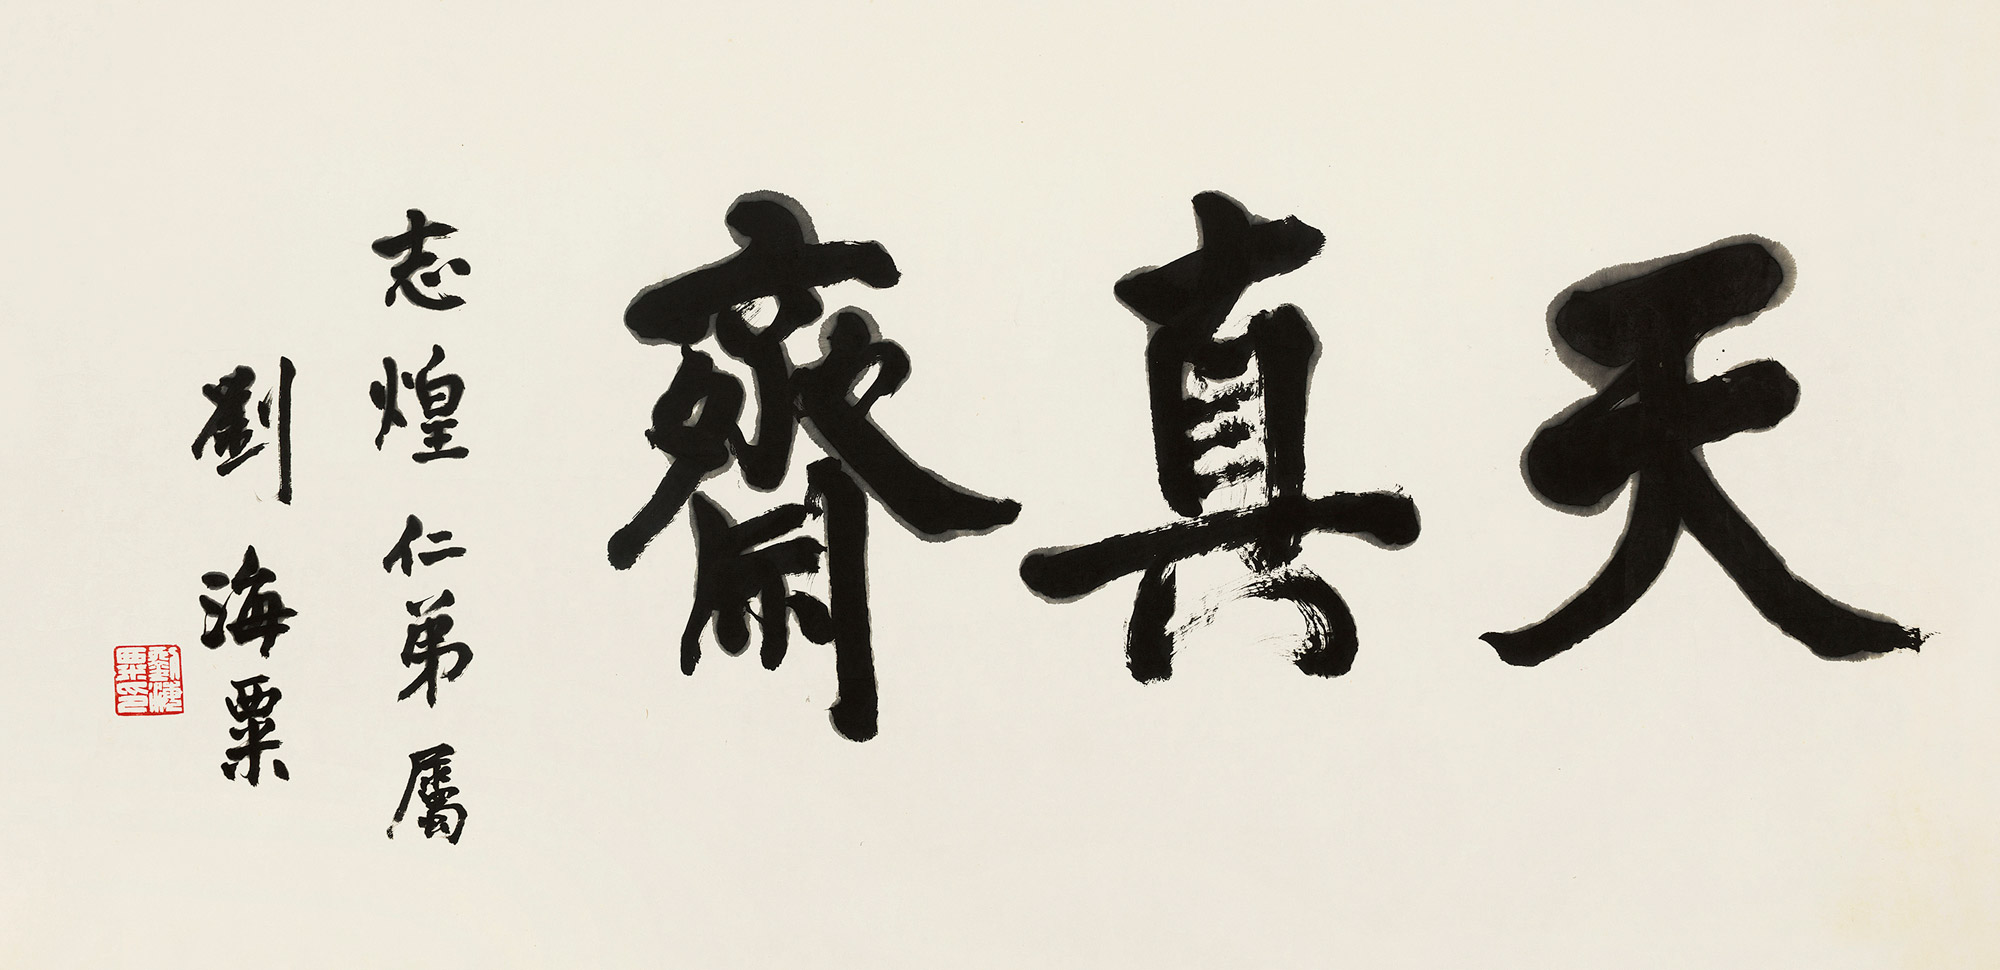 天真齋
志煌仁弟屬
劉海粟
劉海粟印